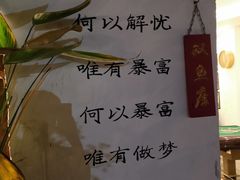 何以解忧
唯有暴富
何以暴富
唯有做梦